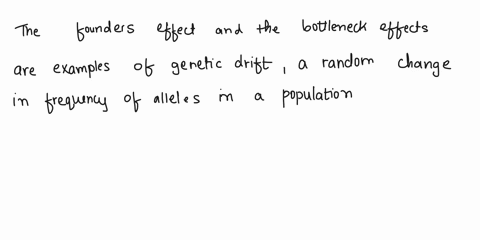 The founders effect and the bottleneck effects
are examples of genetic drift, a random change
in frequency of alleles in a population